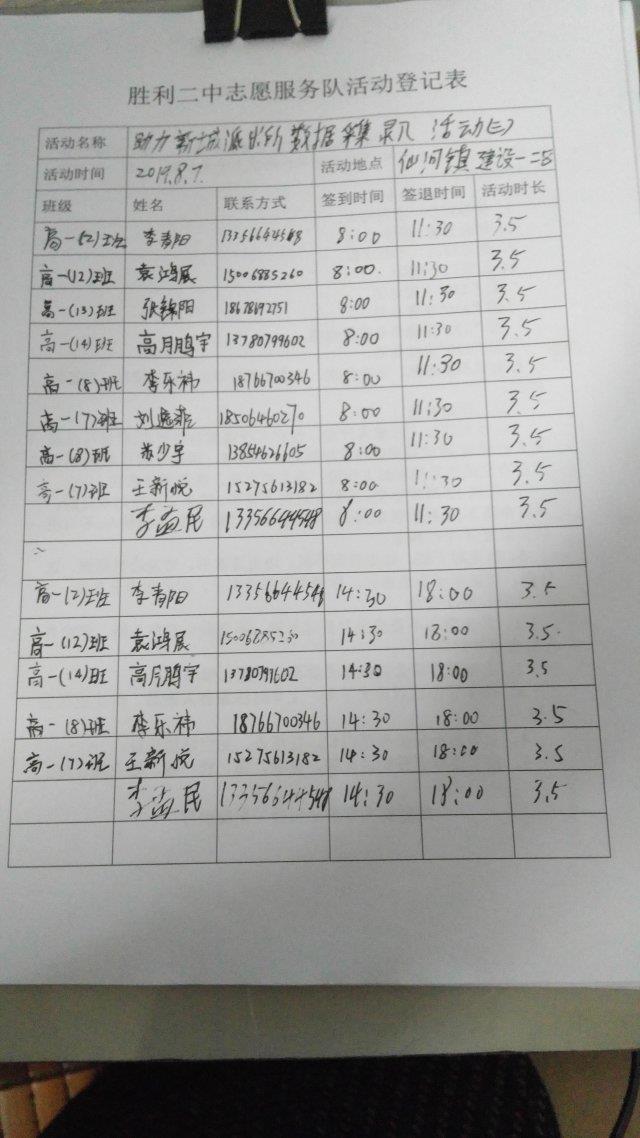 胜利二中志愿服务队活动登记表
活动名称 助力新城派出所数据采集录入 活动(三)
活动时间 2019.8.7. 活动地点 仙河镇建设一二区
班级 姓名 联系方式 签到时间 签退时间 活动时长
高一(2)班 李青阳 13356644548 8:00 11:30 3.5
高一(12)班 袁鸿展 15006885260 8:00. 11:30 3.5
高一(13)班 张锦阳 18678692751 8:00 11:30 3.5
高一(14)班 高月鹏宇 13780799602 8:00 11:30 3.5
高一(8)班 李乐祎 18766700346 8:00 11:30 3.5
高一(7)班 刘逸菲 18506460270 8:00 11:30 3.5
高一(8)班 苏少宇 13854626605 8:00 11:30 3.5
高一(7)班 王新悦 15275613182 8:00 11:30 3.5
李益民 13356644548 8:00 11:30 3.5
高一(2)班 李青阳 13356644548 14:30 18:00 3.5
高一(12)班 袁鸿展 14:30 18:00 3.5.
高一(14)班 高月鹏宇 13780797602 14:30 18:00 3.5
高一(8)班 李乐祎 18766700346 14:30 18:00 3.5
高一(7)班 王新悦 15275613182 14:30 18:00 3.5
李益民 13356644548 14:30 18:00 3.5